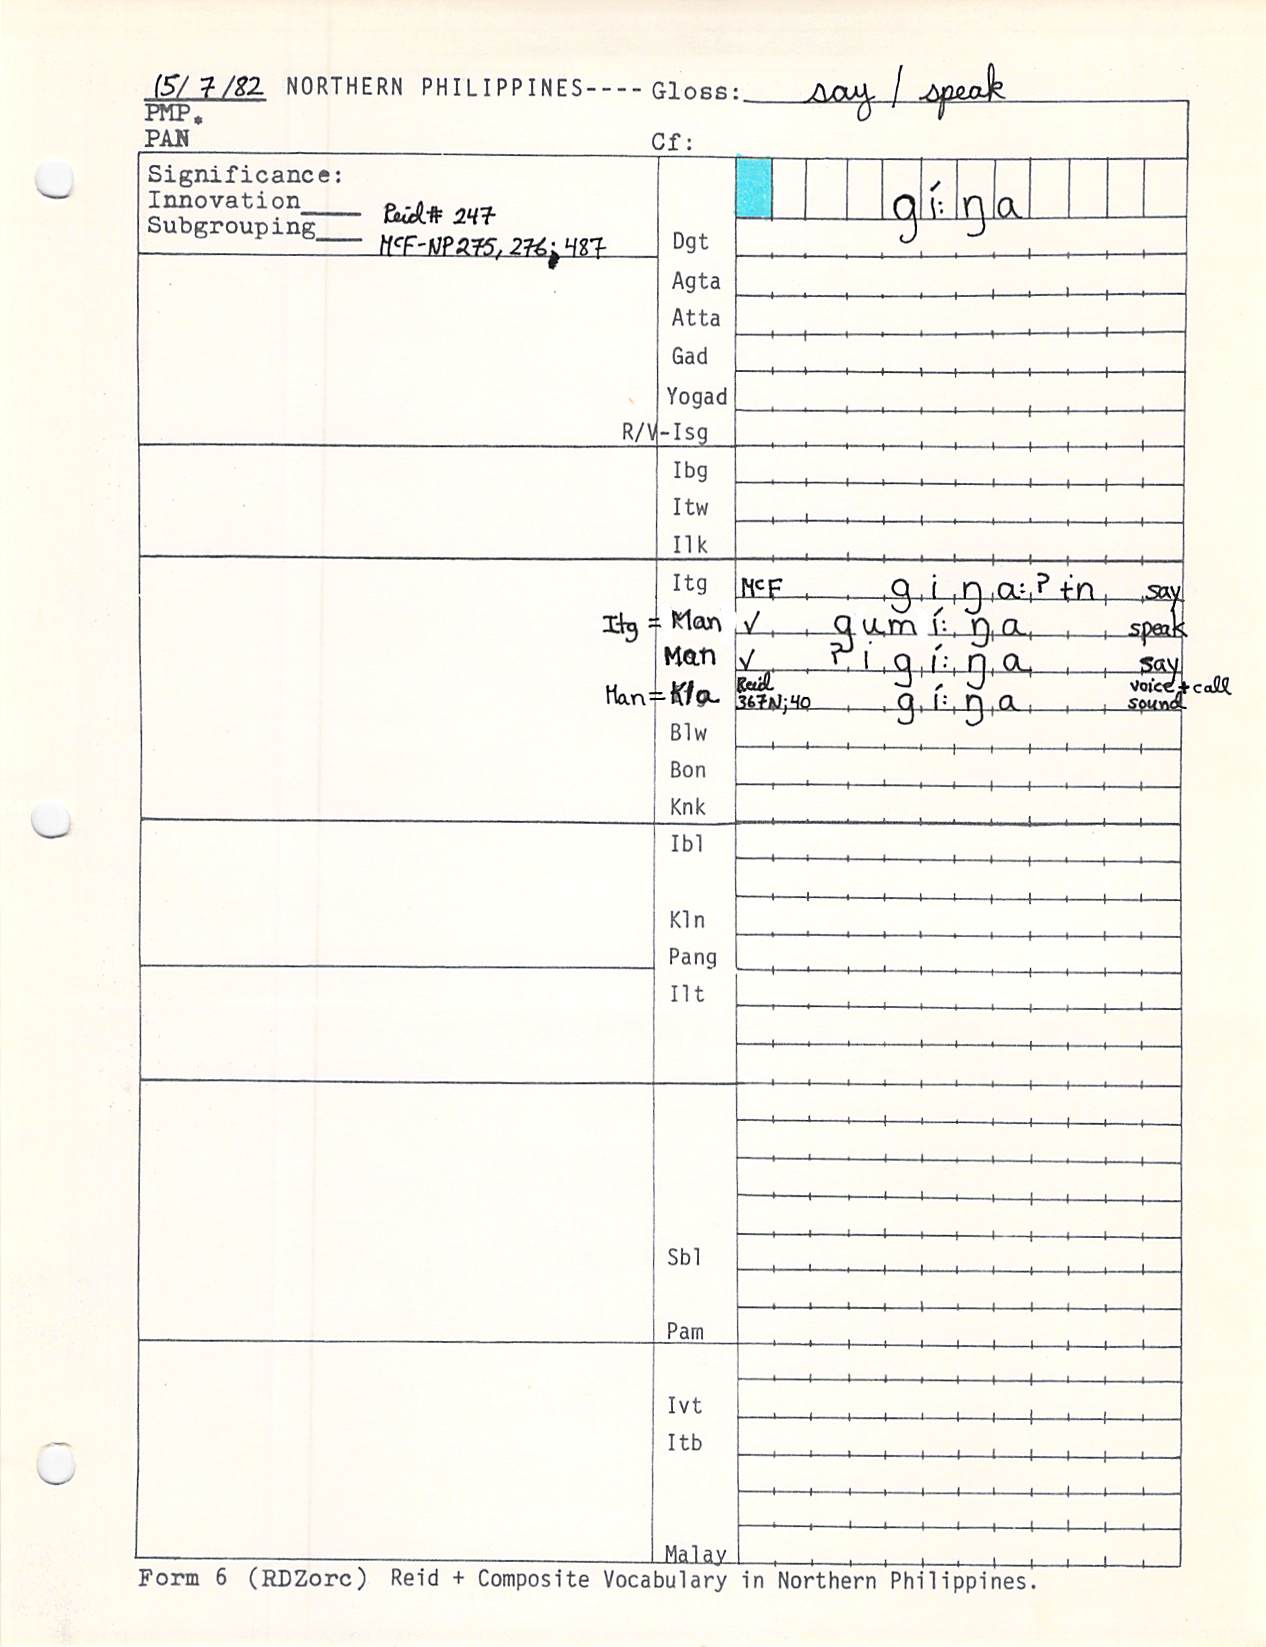 15/7/82 NORTHERN PHILIPPINES---- Gloss: say / speak
PMP*
PAN Cf:
Significance:
Innovation____ Reid# 247
Subgrouping___ McF-NP275, 276; 487
gí:ŋa
Dgt
Agta
Atta
Gad
Yogad
R/V-Isg
Ibg
Itw
Ilk
Itg McF giŋa:ʔɨn say
Itg = Man ✓ gumí:ŋa speak
Man ✓ ʔigí:ŋa say
Man = Kla Reid 367N;40 gí:ŋa voice + call sound
Blw
Bon
Knk
Ibl
Kln
Pang
Ilt
Sbl
Pam
Ivt
Itb
Malay
Form 6 (RDZorc) Reid + Composite Vocabulary in Northern Philippines.